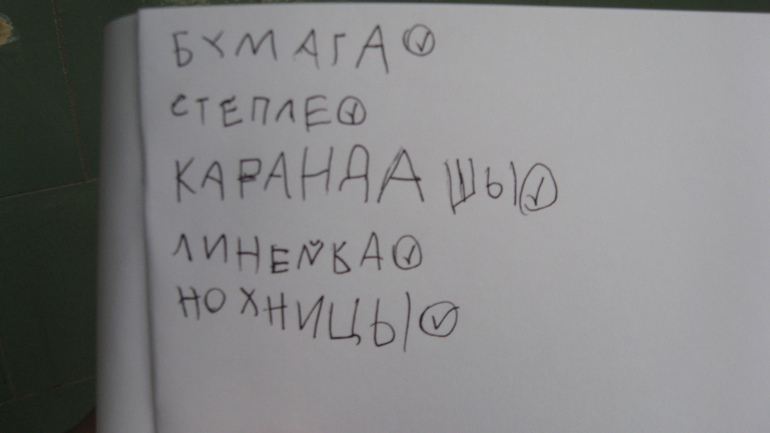 БУМАГА
СТЕПЛЕ
КАРАНДАШЫ
ЛИНЕЙКА
НОХНИЦЫ